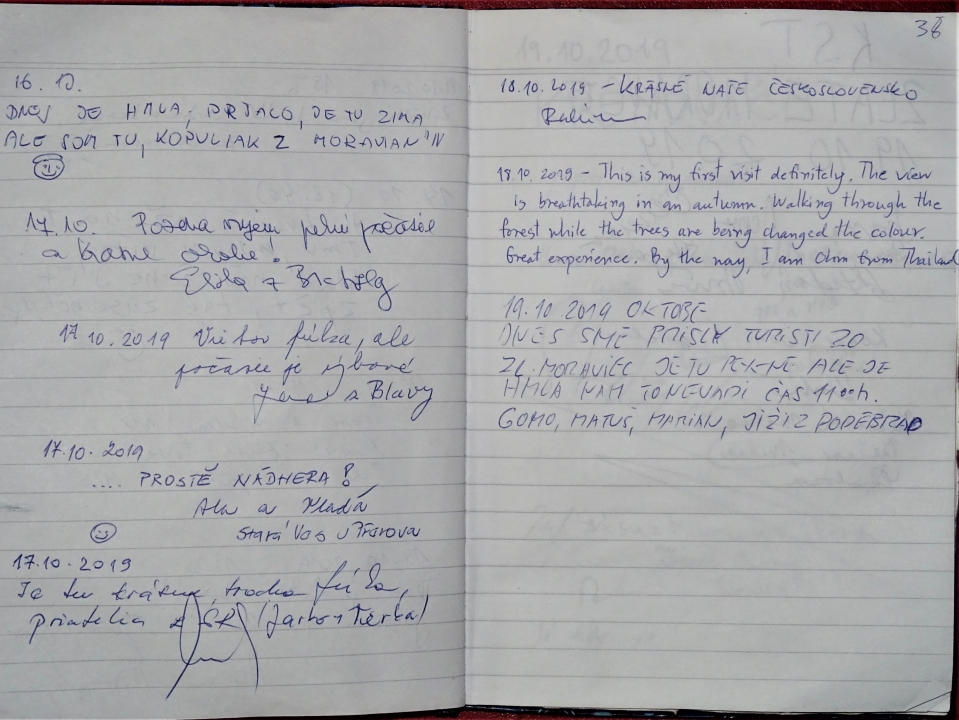 16. 10.
DNES JE HMLA, PRŠALO, JE TU ZIMA
ALE SOM TU, KOPULIAK Z MORAVIAN
17.10. pekné počasie
a krásne okolie!
z
17.10.2019 Vietor fúka, ale
počasie je výborné
z Blavy
17.10.2019
.... PROSTĚ NÁDHERA!
Ala a Vlaďa
Stará Ves u Přerova
17.10.2019
Je tu krásne, trocha fúka,
priatelia z ČR
38
18.10.2019 - KRÁSNÉ NAŠE ČESKOSLOVENSKO
18.10.2019 - This is my first visit definitely. The view
is breathtaking in an autumn. Walking through the
forest while the trees are being changed the colour.
Great experience. By the way, I am Ohm from Thailand
19.10 2019 OKTOBE
DNES SME PRISLI TURISTI ZO
ZL. MORAVIEC JE TU PEKNE ALE JE
HMLA NAM TO NEVADI ČAS 11ooh.
GOMO, MATUŠ, MARIAN, JIŽI Z PODĚBRAD